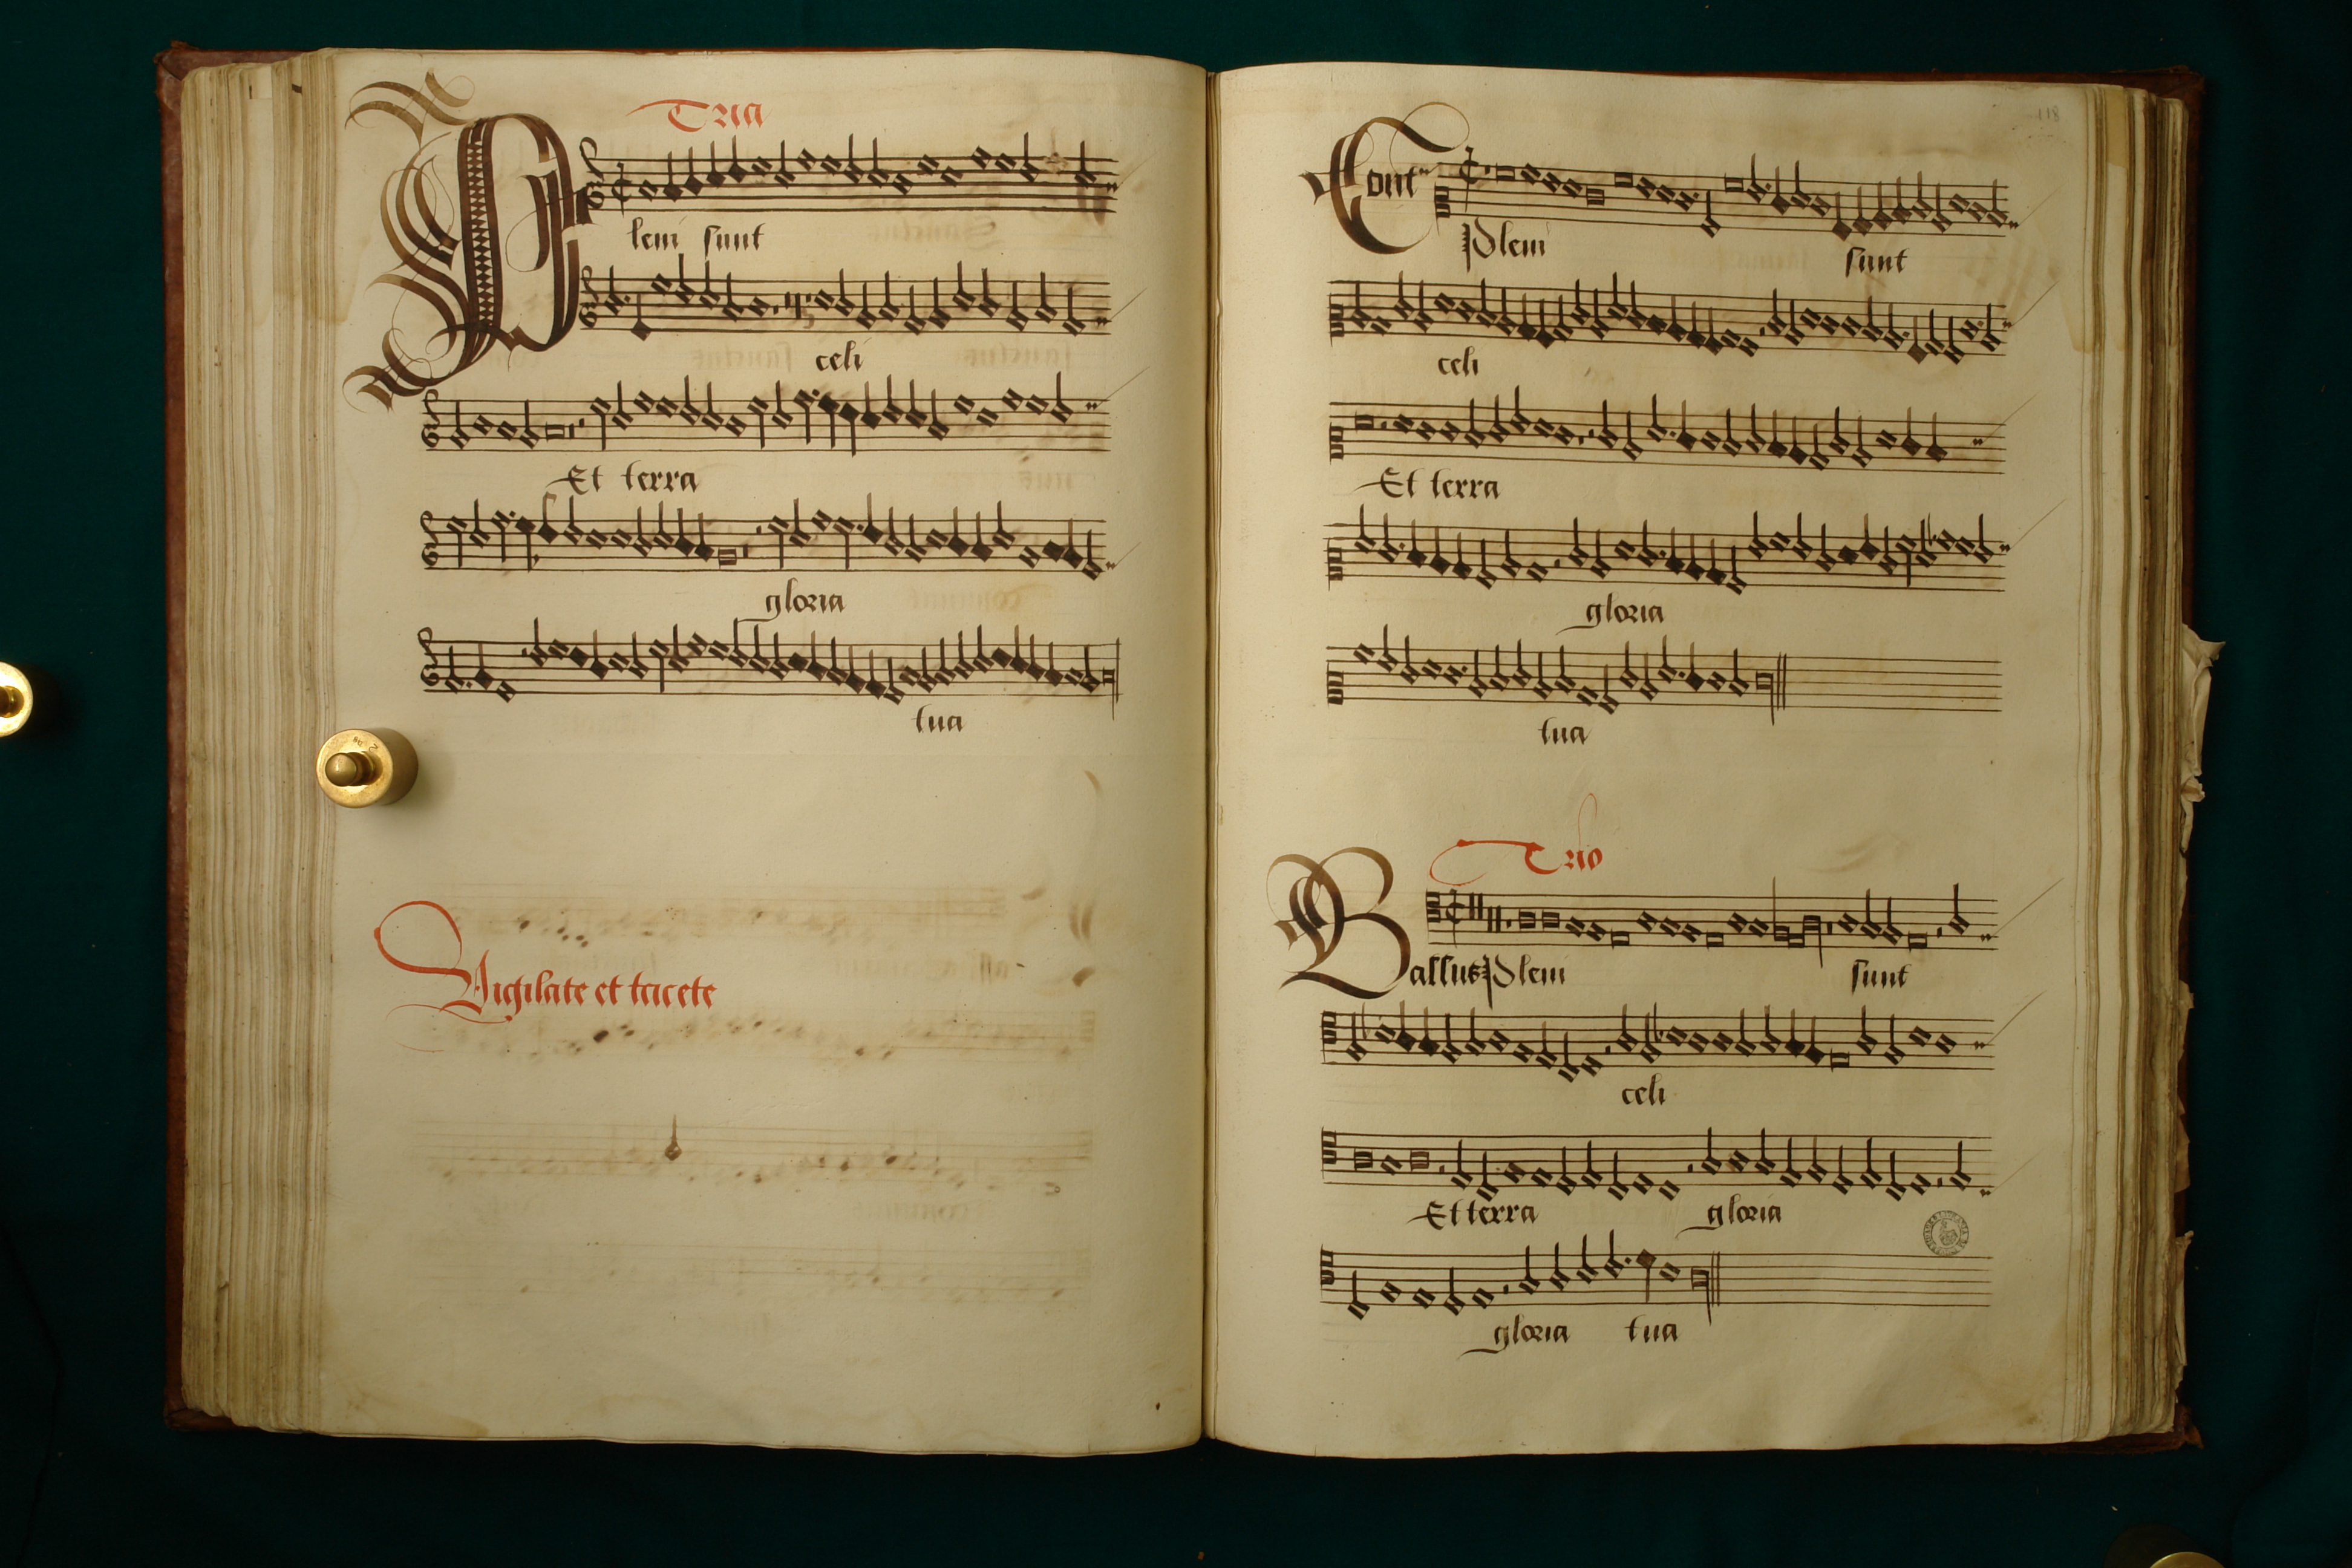 Tria
Pleni sunt
celi
Et terra
gloria
tua
Vigilate et tacete
118
Cont"
Pleni sunt
celi
Et terra
gloria
tua
Trio
Bassus Pleni sunt
celi
Et terra gloria
gloria tua